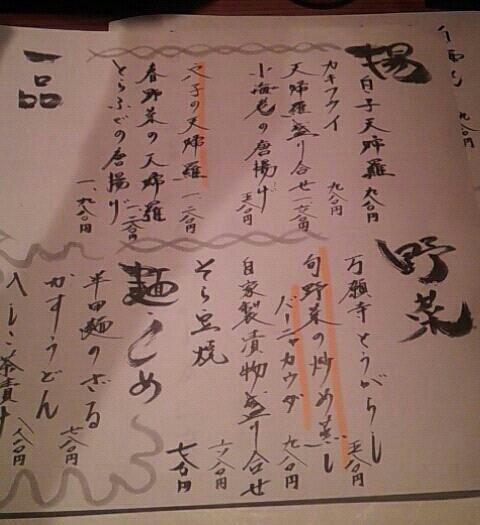 揚
白子天婦羅 九八〇円
カキフライ 九八〇円
天婦羅盛り合せ
小海老の唐揚げ 五八〇円
穴子の天婦羅 一、二八〇円
春野菜の天婦羅
とらふぐの唐揚げ 一、九八〇円
一品
野菜
万願寺とうがらし 五八〇円
旬野菜の炒め蒸し
バーニャカウダ 九八〇円
自家製漬物盛り合せ 六八〇円
そら豆焼 七八〇円
麺・〆め
半田麺のざる
かすうどん 七八〇円
じゃこ茶漬け 八八〇円